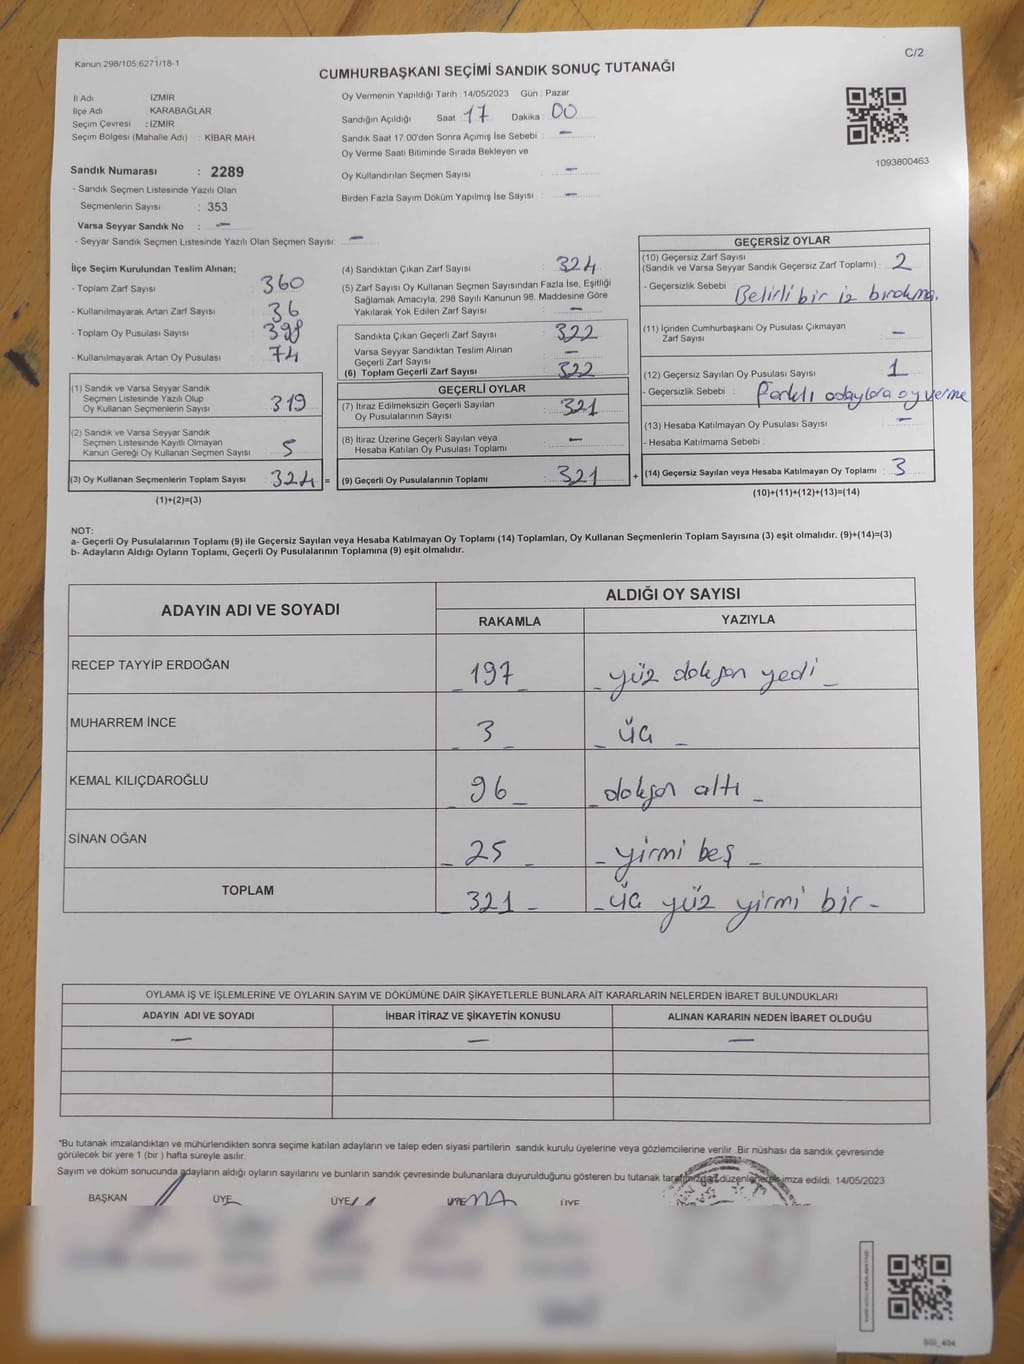 Kanun:298/105;6271/18-1
C/2
CUMHURBAŞKANI SEÇİMİ SANDIK SONUÇ TUTANAĞI
İl Adı İZMİR
İlçe Adı : KARABAĞLAR
Seçim Çevresi : İZMİR
Seçim Bölgesi (Mahalle Adı) : KİBAR MAH
Oy Vermenin Yapıldığı Tarih : 14/05/2023 Gün : Pazar
Sandığın Açıldığı Saat 17 Dakika : 00
Sandık Saat 17.00'den Sonra Açımış İse Sebebi : —
Oy Verme Saati Bitiminde Sırada Bekleyen ve
Oy Kullandırılan Seçmen Sayısı : —
Birden Fazla Sayım Döküm Yapılmış İse Sayısı : —
1093800463
Sandık Numarası : 2289
- Sandık Seçmen Listesinde Yazılı Olan
Seçmenlerin Sayısı : 353
Varsa Seyyar Sandık No : —
- Seyyar Sandık Seçmen Listesinde Yazılı Olan Seçmen Sayısı: —
İlçe Seçim Kurulundan Teslim Alınan;
- Toplam Zarf Sayısı : 360
- Kullanılmayarak Artan Zarf Sayısı : 36
- Toplam Oy Pusulası Sayısı : 398
- Kullanılmayarak Artan Oy Pusulası : 74
(1) Sandık ve Varsa Seyyar Sandık
Seçmen Listesinde Yazılı Olup
Oy Kullanan Seçmenlerin Sayısı : 319
(2) Sandık ve Varsa Seyyar Sandık
Seçmen Listesinde Kayıtlı Olmayan
Kanun Gereği Oy Kullanan Seçmen Sayısı : 5
(3) Oy Kullanan Seçmenlerin Toplam Sayısı : 324 =
(1)+(2)=(3)
(4) Sandıktan Çıkan Zarf Sayısı : 324
(5) Zarf Sayısı Oy Kullanan Seçmen Sayısından Fazla İse, Eşitliği
Sağlamak Amacıyla, 298 Sayılı Kanunun 98. Maddesine Göre
Yakılarak Yok Edilen Zarf Sayısı : —
Sandıkta Çıkan Geçerli Zarf Sayısı : 322
Varsa Seyyar Sandıktan Teslim Alınan
Geçerli Zarf Sayısı : —
(6) Toplam Geçerli Zarf Sayısı : 322
GEÇERLİ OYLAR
(7) İtiraz Edilmeksizin Geçerli Sayılan
Oy Pusulalarının Sayısı : 321
(8) İtiraz Üzerine Geçerli Sayılan veya
Hesaba Katılan Oy Pusulası Toplamı : —
(9) Geçerli Oy Pusulalarının Toplamı : 321 +
GEÇERSİZ OYLAR
(10) Geçersiz Zarf Sayısı
(Sandık ve Varsa Seyyar Sandık Geçersiz Zarf Toplamı) : 2
- Geçersizlik Sebebi : Belirli bir iz bırakma.
(11) İçinden Cumhurbaşkanı Oy Pusulası Çıkmayan
Zarf Sayısı : —
(12) Geçersiz Sayılan Oy Pusulası Sayısı : 1
- Geçersizlik Sebebi : Farklı adaylara oy verme
(13) Hesaba Katılmayan Oy Pusulası Sayısı : —
- Hesaba Katılmama Sebebi :
(14) Geçersiz Sayılan veya Hesaba Katılmayan Oy Toplamı : 3
(10)+(11)+(12)+(13)=(14)
NOT:
a- Geçerli Oy Pusulalarının Toplamı (9) ile Geçersiz Sayılan veya Hesaba Katılmayan Oy Toplamı (14) Toplamları, Oy Kullanan Seçmenlerin Toplam Sayısına (3) eşit olmalıdır. (9)+(14)=(3)
b- Adayların Aldığı Oyların Toplamı, Geçerli Oy Pusulalarının Toplamına (9) eşit olmalıdır.
ADAYIN ADI VE SOYADI ALDIĞI OY SAYISI
RAKAMLA YAZIYLA
RECEP TAYYİP ERDOĞAN 197 yüz doksan yedi
MUHARREM İNCE 3 üç
KEMAL KILIÇDAROĞLU 96 doksan altı
SİNAN OĞAN 25 yirmi beş
TOPLAM 321 üç yüz yirmi bir
OYLAMA İŞ VE İŞLEMLERİNE VE OYLARIN SAYIM VE DÖKÜMÜNE DAİR ŞİKAYETLERLE BUNLARA AİT KARARLARIN NELERDEN İBARET BULUNDUKLARI
ADAYIN ADI VE SOYADI İHBAR İTİRAZ VE ŞİKAYETİN KONUSU ALINAN KARARIN NEDEN İBARET OLDUĞU
— — —
"Bu tutanak imzalandıktan ve mühürlendikten sonra seçime katılan adayların ve talep eden siyasi partilerin sandık kurulu üyelerine veya gözlemcilerine verilir. Bir nüshası da sandık çevresinde
görülecek bir yere 1 (bir ) hafta süreyle asılır.
Sayım ve döküm sonucunda adayların aldığı oyların sayılarını ve bunların sandık çevresinde bulunanlara duyurulduğunu gösteren bu tutanak tarafımızdan düzenlenerek imza edildi. 14/05/2023
BAŞKAN ÜYE ÜYE ÜYE ÜYE